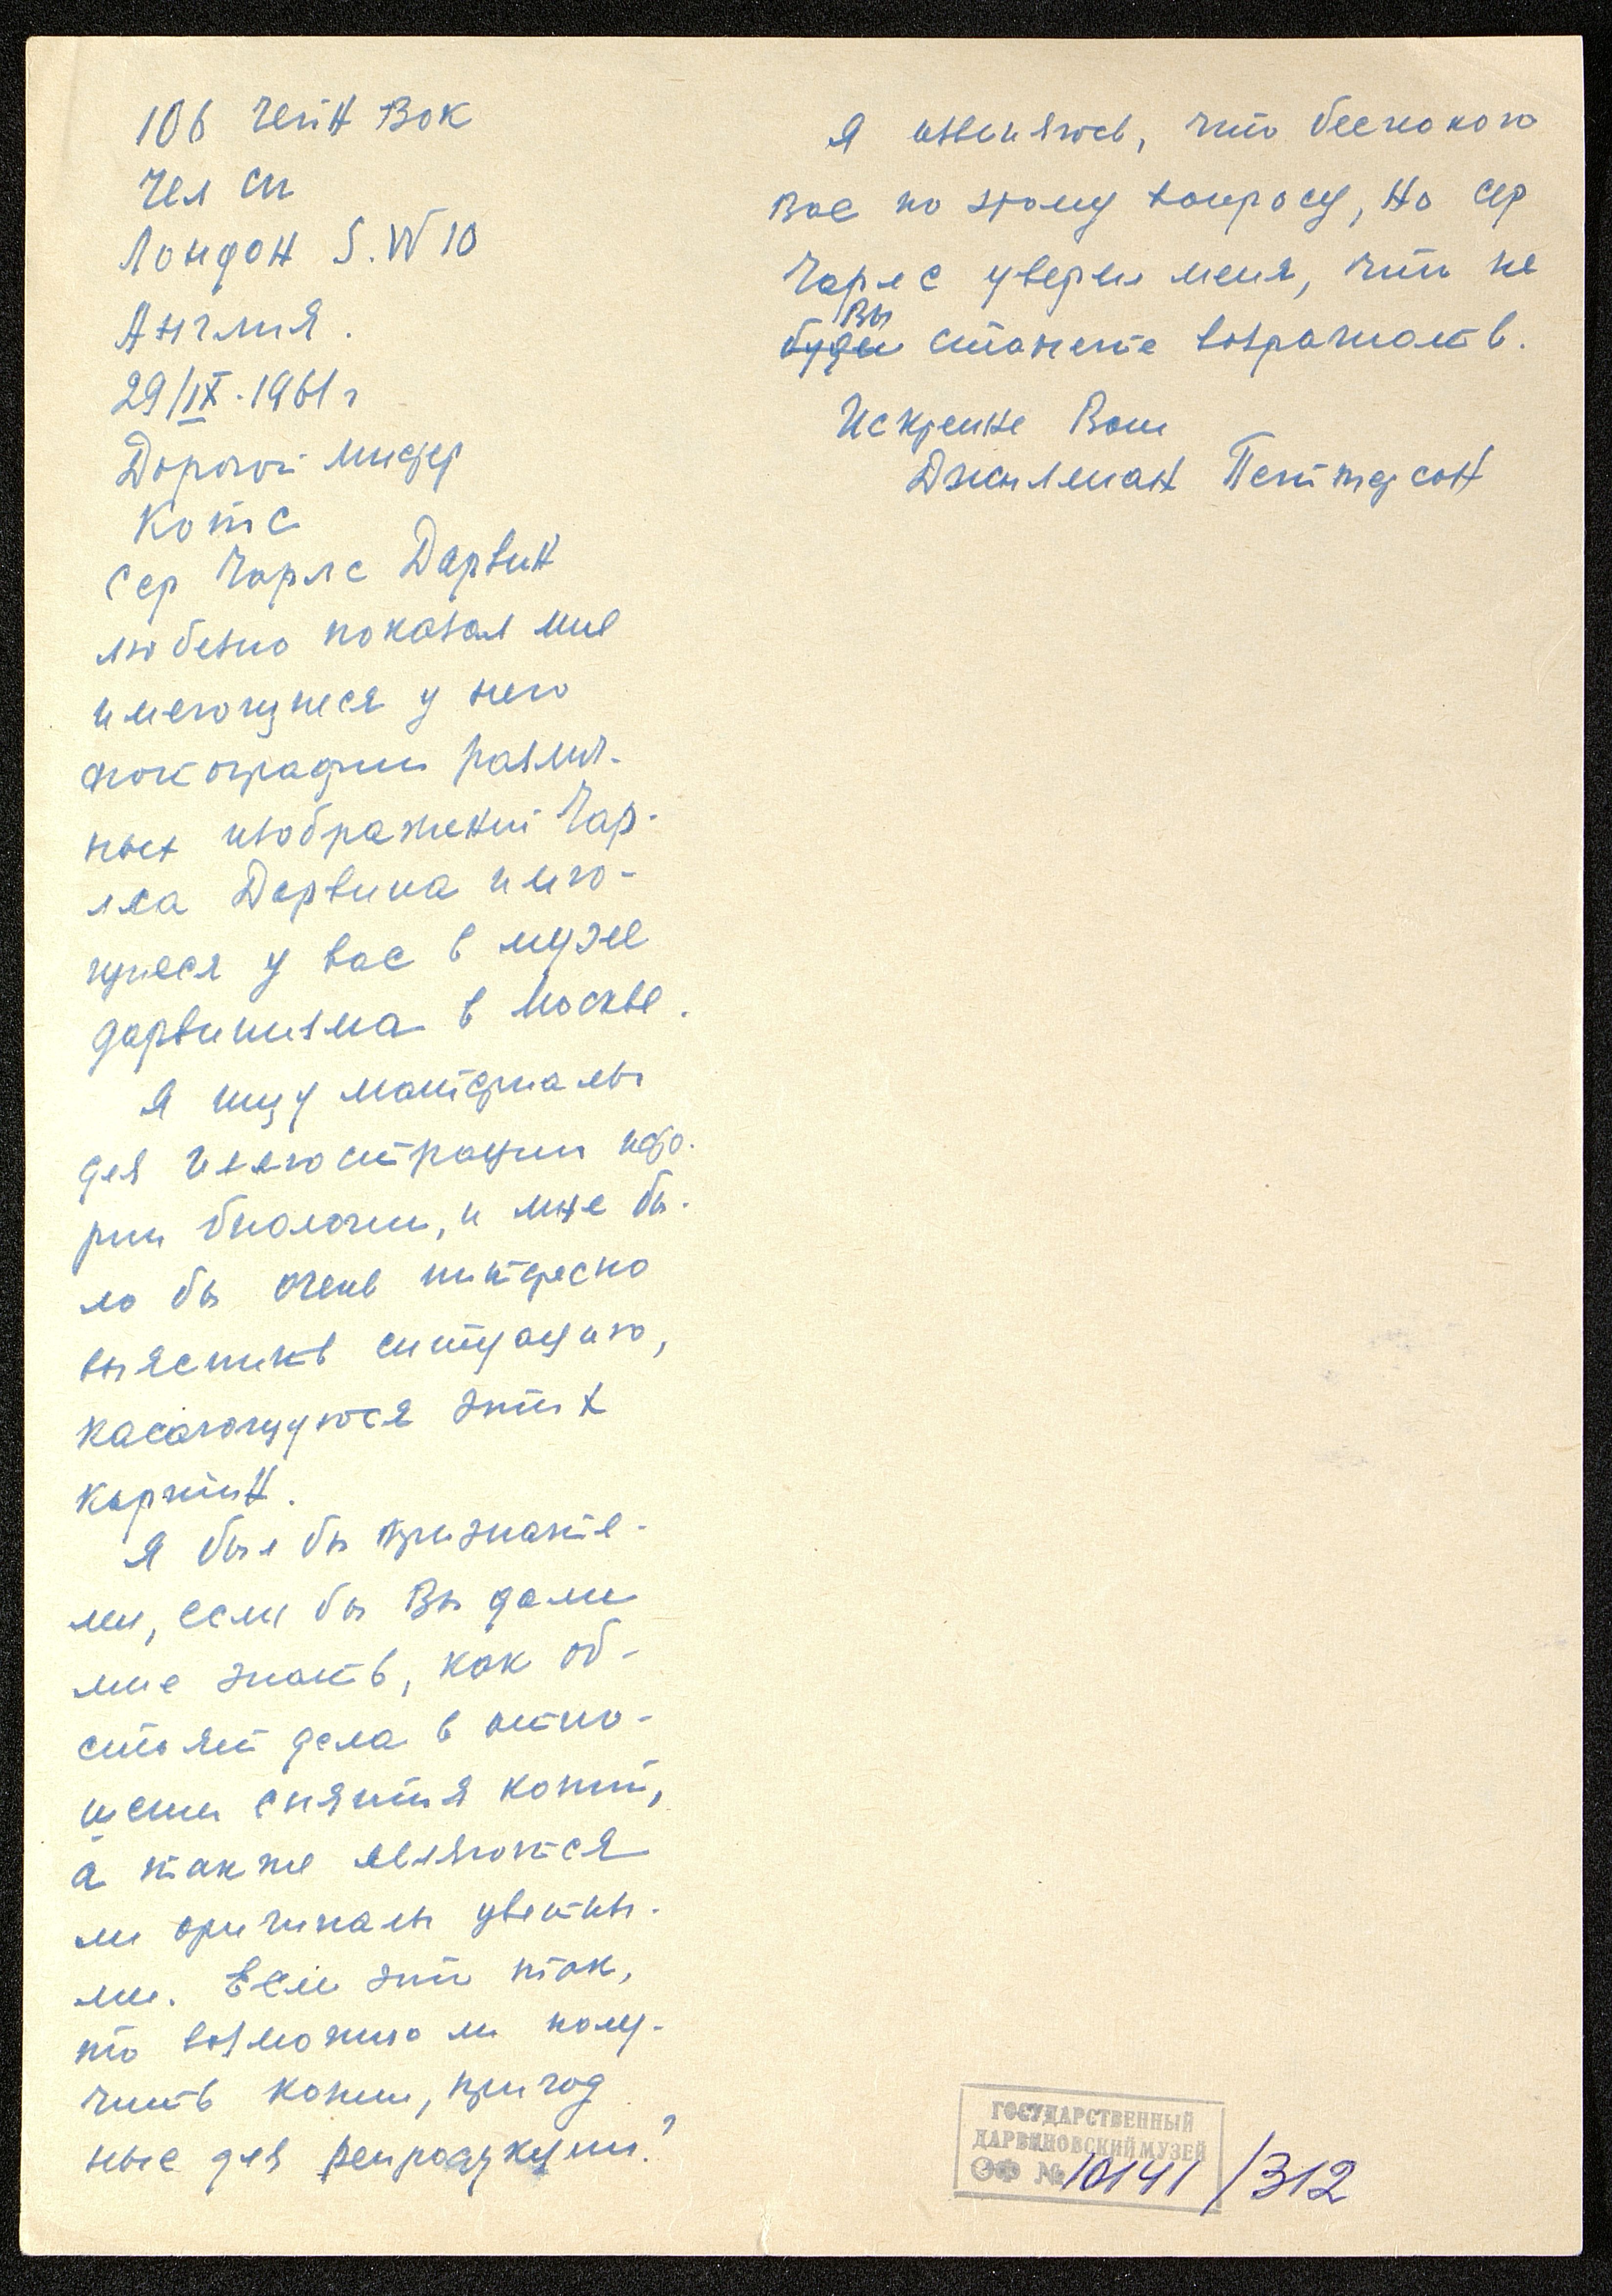 106 Чейн Вок
Челси
Лондон S.W 10
Англия.
29/IX.1961 г
Дорогой мистер
Котс
Сер Чарлс Дарвин
любезно показал мне
имеющиеся у него
фотографии различ-
ных изображений Чар-
лса Дарвина имею-
щиеся у вас в музее
дарвинизма в Москве.
Я ищу материалы
для иллюстрации исто-
рии биологии, и мне бы-
ло бы очень интересно
выяснить ситуацию,
касающуюся этих
картин.
Я был бы признате-
лен, если бы Вы дали
мне знать, как об-
стоят дела в отно-
шении снятия копий,
а также являются
ли оригиналы цветны-
ми. Если это так,
то возможно ли полу-
чить копии, пригод
ные для репродукции?
Я извиняюсь, что беспокою
Вас по этому вопросу, но Сер
Чарлс уверил меня, что не
Вы
будете станете возражать.
Искренне Ваш
Джылман Пентерсон
ГОСУДАРСТВЕННЫЙ
ДАРВИНОВСКИЙ МУЗЕЙ
ОФ № 10141/312